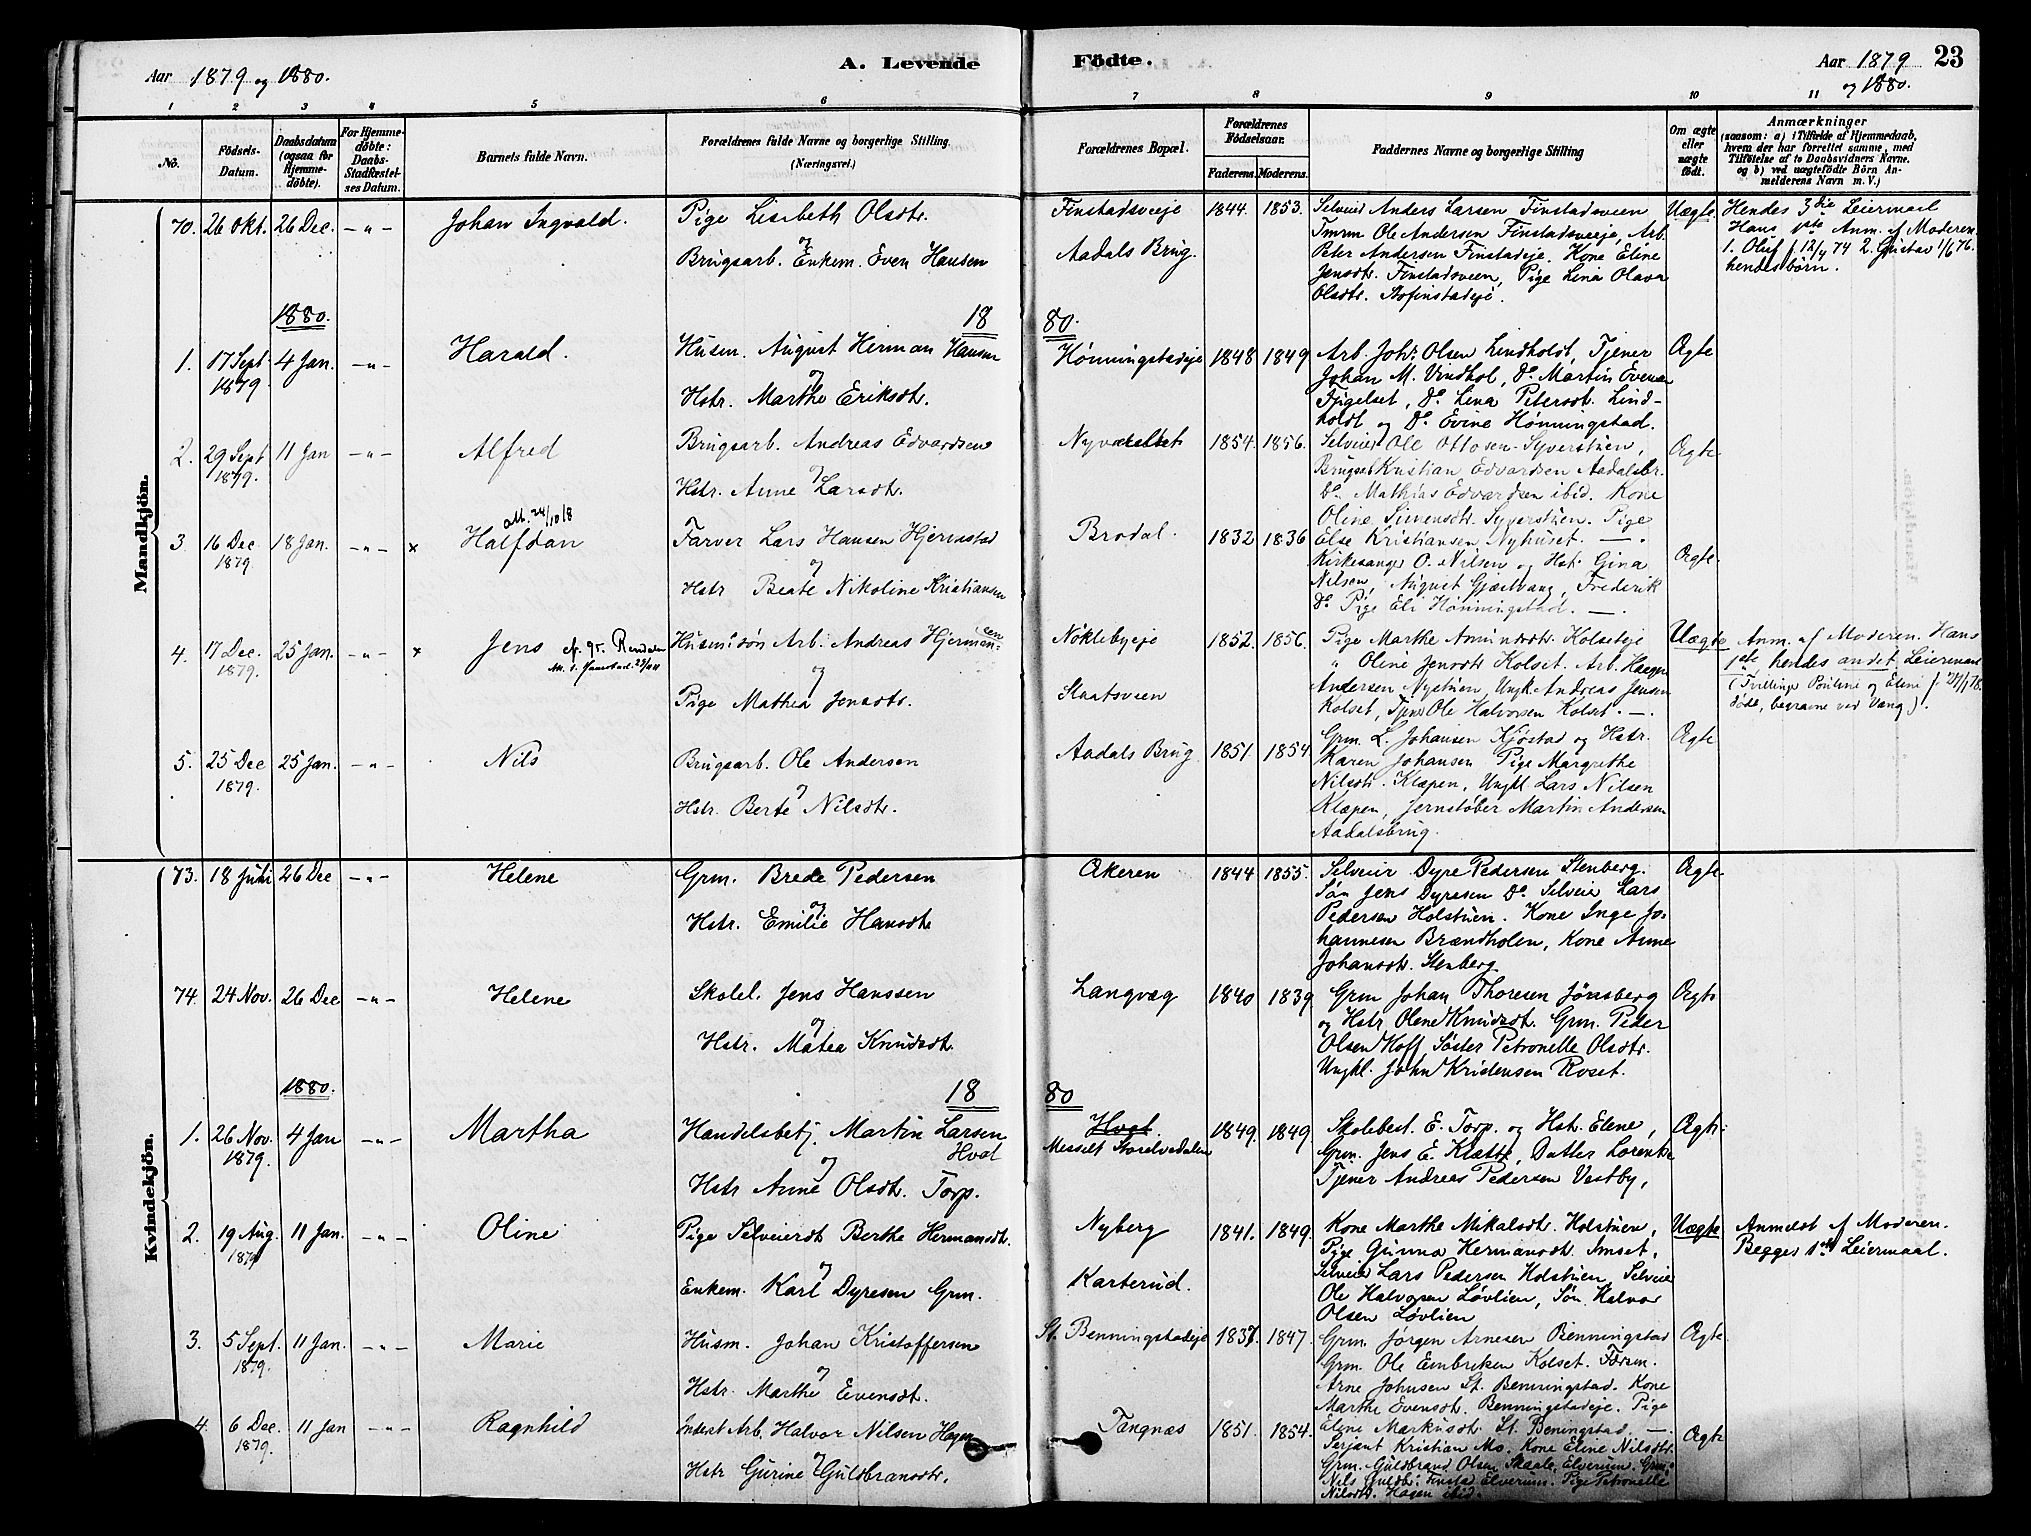 Aar 1879 og 1880.
A. Levende Födte.
Aar 1879 og 1880.
23
1 2 3 4 5 6 7 8 9 10 11
No.
Födsels-Datum.
Daabsdatum (ogsaa for Hjemme-döbte).
For Hjemme-döbte: Daabs-Stadfæstel-ses Datum.
Barnets fulde Navn.
Forældrenes fulde Navne og borgerlige Stilling (Næringsvei.)
Forældrenes Bopæl.
Forældrenes Födselsaar.
Faderens. Moderens.
Faddernes Navne og borgerlige Stilling
Om ægte eller uægte födt.
Anmærkninger
(saasom: a) i Tilfælde af Hjemmedaab, hvem der har forrettet samme, med Tilföielse af to Daabsvidners Navne. og b) ved uægtefödte Börn An-melderens Navn m. V.)
Mandkjön.
70. 26 Okt. 26 Dec. -"- Johan Ingvald.
Pige Lisebeth Olsdtr.
og
Brugsarb. Enkem. Even Hansen
Finstadsveeje
Aadals Brug.
1844. 1853.
Selveier Anders Larsen Finstadsveen
Tmrm Ole Andersen Finstadsveeje, Arb.
Peter Andersen Finstadeje. Kone Eline
Jensdtr. Finstadsveen, Pige Lina Olava
Olsdtr.
Uægte
Hendes 3die Leiermaal
Hans 1ste Anm. af Moderen.
1. Oluf f 12/4 74 2. Gustav 1/6 76.
hendes børn.
1880. 1880.
1. 17 Sept 1879. 4 Jan. -"- Harald.
Husm. August Herman Hansen
og
Hstr. Marthe Eriksdtr.
Hønningstadeje 1848 1849
Arb. Johs Olsen Lindholdt, Tjener
Johan M. Vindhol, Do Martin Evensen
Fjigelset, Do Lina Petersdt. Lind-
holdt og Do Evine Hønningstad.
Ægte
2. 29 Sept 1879. 11 Jan -"- Alfred
Brugsarb. Andreas Edvardsen
og
Hstr. Anne Larsdt.
1854. 1856.
Selveier Ole Ottosen Syverstuen,
Brugsarb Kristian Edvardsen Aadalsbr.
Do Mathias Edvardsen ibid. Kone
Oline Simensdtr. Syverstuen. Pige
Else Kristiansen Nyhuset.
Ægte
3. 16 Dec 1879. 18 Jan. -"- x Halfdan
att. 24/10 18
Farver Lars Hansen Hjermstad
og
Hstr Beate Nikoline Kristiansen
Brodal. 1832 1836
Kirkesanger O. Nilsen og Hst. Gina
Nilsen, August Gjæstvang, Frederik
Do Pige Eli Hønningstad.
Ægte.
4. 17 Dec. 1879. 25 Jan. -"- x Jens
Husm.søn Arb. Andreas Hjermansen
og
Pige Mathea Jensdtr.
Nøklebyeje
Staatsveen
1852. 1856.
Pige Marthe Amundsdtr. Kolseteje
" Oline Jensdtr Kolset. Arb. Haagen
Andersen Nystuen, Ungk. Andreas Jensen
Kolset, Tjener Ole Halvorsen Kolset.
Uægte
Anm. af Moderen. Hans
1ste, hendes andet Leiermaal
(Tvillinge Pouline og Eline f. 27/1 78.
døde, begravne ved Vang).
5. 25 Dec 1879. 25 Jan. -"- Nils
Brugsarb. Ole Andersen
og
Hstr. Berte Nilsdtr.
Aadals Brug 1851. 1854
Grm. L. Johansen Kjøstad og Hstr.
Karen Johansen Pige Margrethe
Nilsdtr. Klæpen, Ungkl. Lars Nilsen
Klæpen, Jernstøber Martin Andersen
Aadalsbrug.
Ægte
Kvindekjön.
73. 18 Juli 26 Dec -"- Helene
Grm. Brede Pedersen
og
Hstr. Emilie Hansdt.
Økeren 1844 1855.
Selveier Dyre Pedersen Stenberg.
Søn Jens Dyresen Do Selveier Lars
Pedersen Holstuen. Kone Inge Jo-
hannesen Brændholen, Kone Anne
Johansdtr. Stenberg
Ægte.
74. 24 Nov. 26 Dec -"- Helene
Skolel. Jens Hanssen
og
Hstr. Matea Knudsdt.
Langvæg 1840 1839
Grm Johan Thoresen Jønsberg
og Hstr Olene Knudsdt. Grm. Peder
Olsen Hoff Søster Petronelle Olsdtr.
Ungkl. John Kristensen Roset.
Ægte
1880. 1880
1. 26 Nov. 1879. 4 Jan -"- Martha
Handelsbetj. Martin Larsen
Hvat
og
Hstr Anne Olsdt. Torp.
Hvat.
Messelt Storelvedalen
1849. 1849
Skolebest. E. Torp. og Hst. Elene,
Grm. Jens E. Klætte, Datter Lorentze
Tjener Andreas Pedersen Vestby,
Ægte
2. 19 Aug. 1879 11 Jan. -"- Oline
Pige Selveierdt Berthe Hermansdt.
og
Enkem. Karl Dyresen Grm.
Nyberg
Karterud.
1841. 1849.
Kone Marthe Mikalsdtr. Holstuen,
Pige Gunna Hermansdt. Imset,
Selveier Lars Pedersen Holstuen, Selveier
Ole Halvorsen Løvlien, Søn Halvor
Olsen Løvlien
Uægte
Anmeldt af Moderen.
Begges 1ste Leiermaal.
3. 5 Sept. 1879. 11 Jan. -"- Marie
Husm. Johan Kristoffersen
og
Hstr. Marthe Evensdt.
St. Benningstadeje 1837. 1847.
Grm. Jørgen Arnesen Benningstad
Grm. Ole Embriksen Kolset.
Arne Johnsen St. Benningstad. Kone
Marthe Svensdt. Benningstadeje. Pige
Eline Markusdt. St. Benningstad.
Ægte
4. 6 Dec. 1879. 11 Jan -"- Ragnhild
Arb. Halvor Nilsen Hagen
og
Hstr Gurine Guldbransdtr.
Tangnæs 1851. 1854.
Serjant Kristian Mo. Kone Eline Nilsdtr.
Grm. Guldbrand Olsen Skaale, Elverum. Grm.
Nils Guldbr. Finstad Elverum. Pige Petronelle
Nilsdtr. Hagen ibid.
Ægte